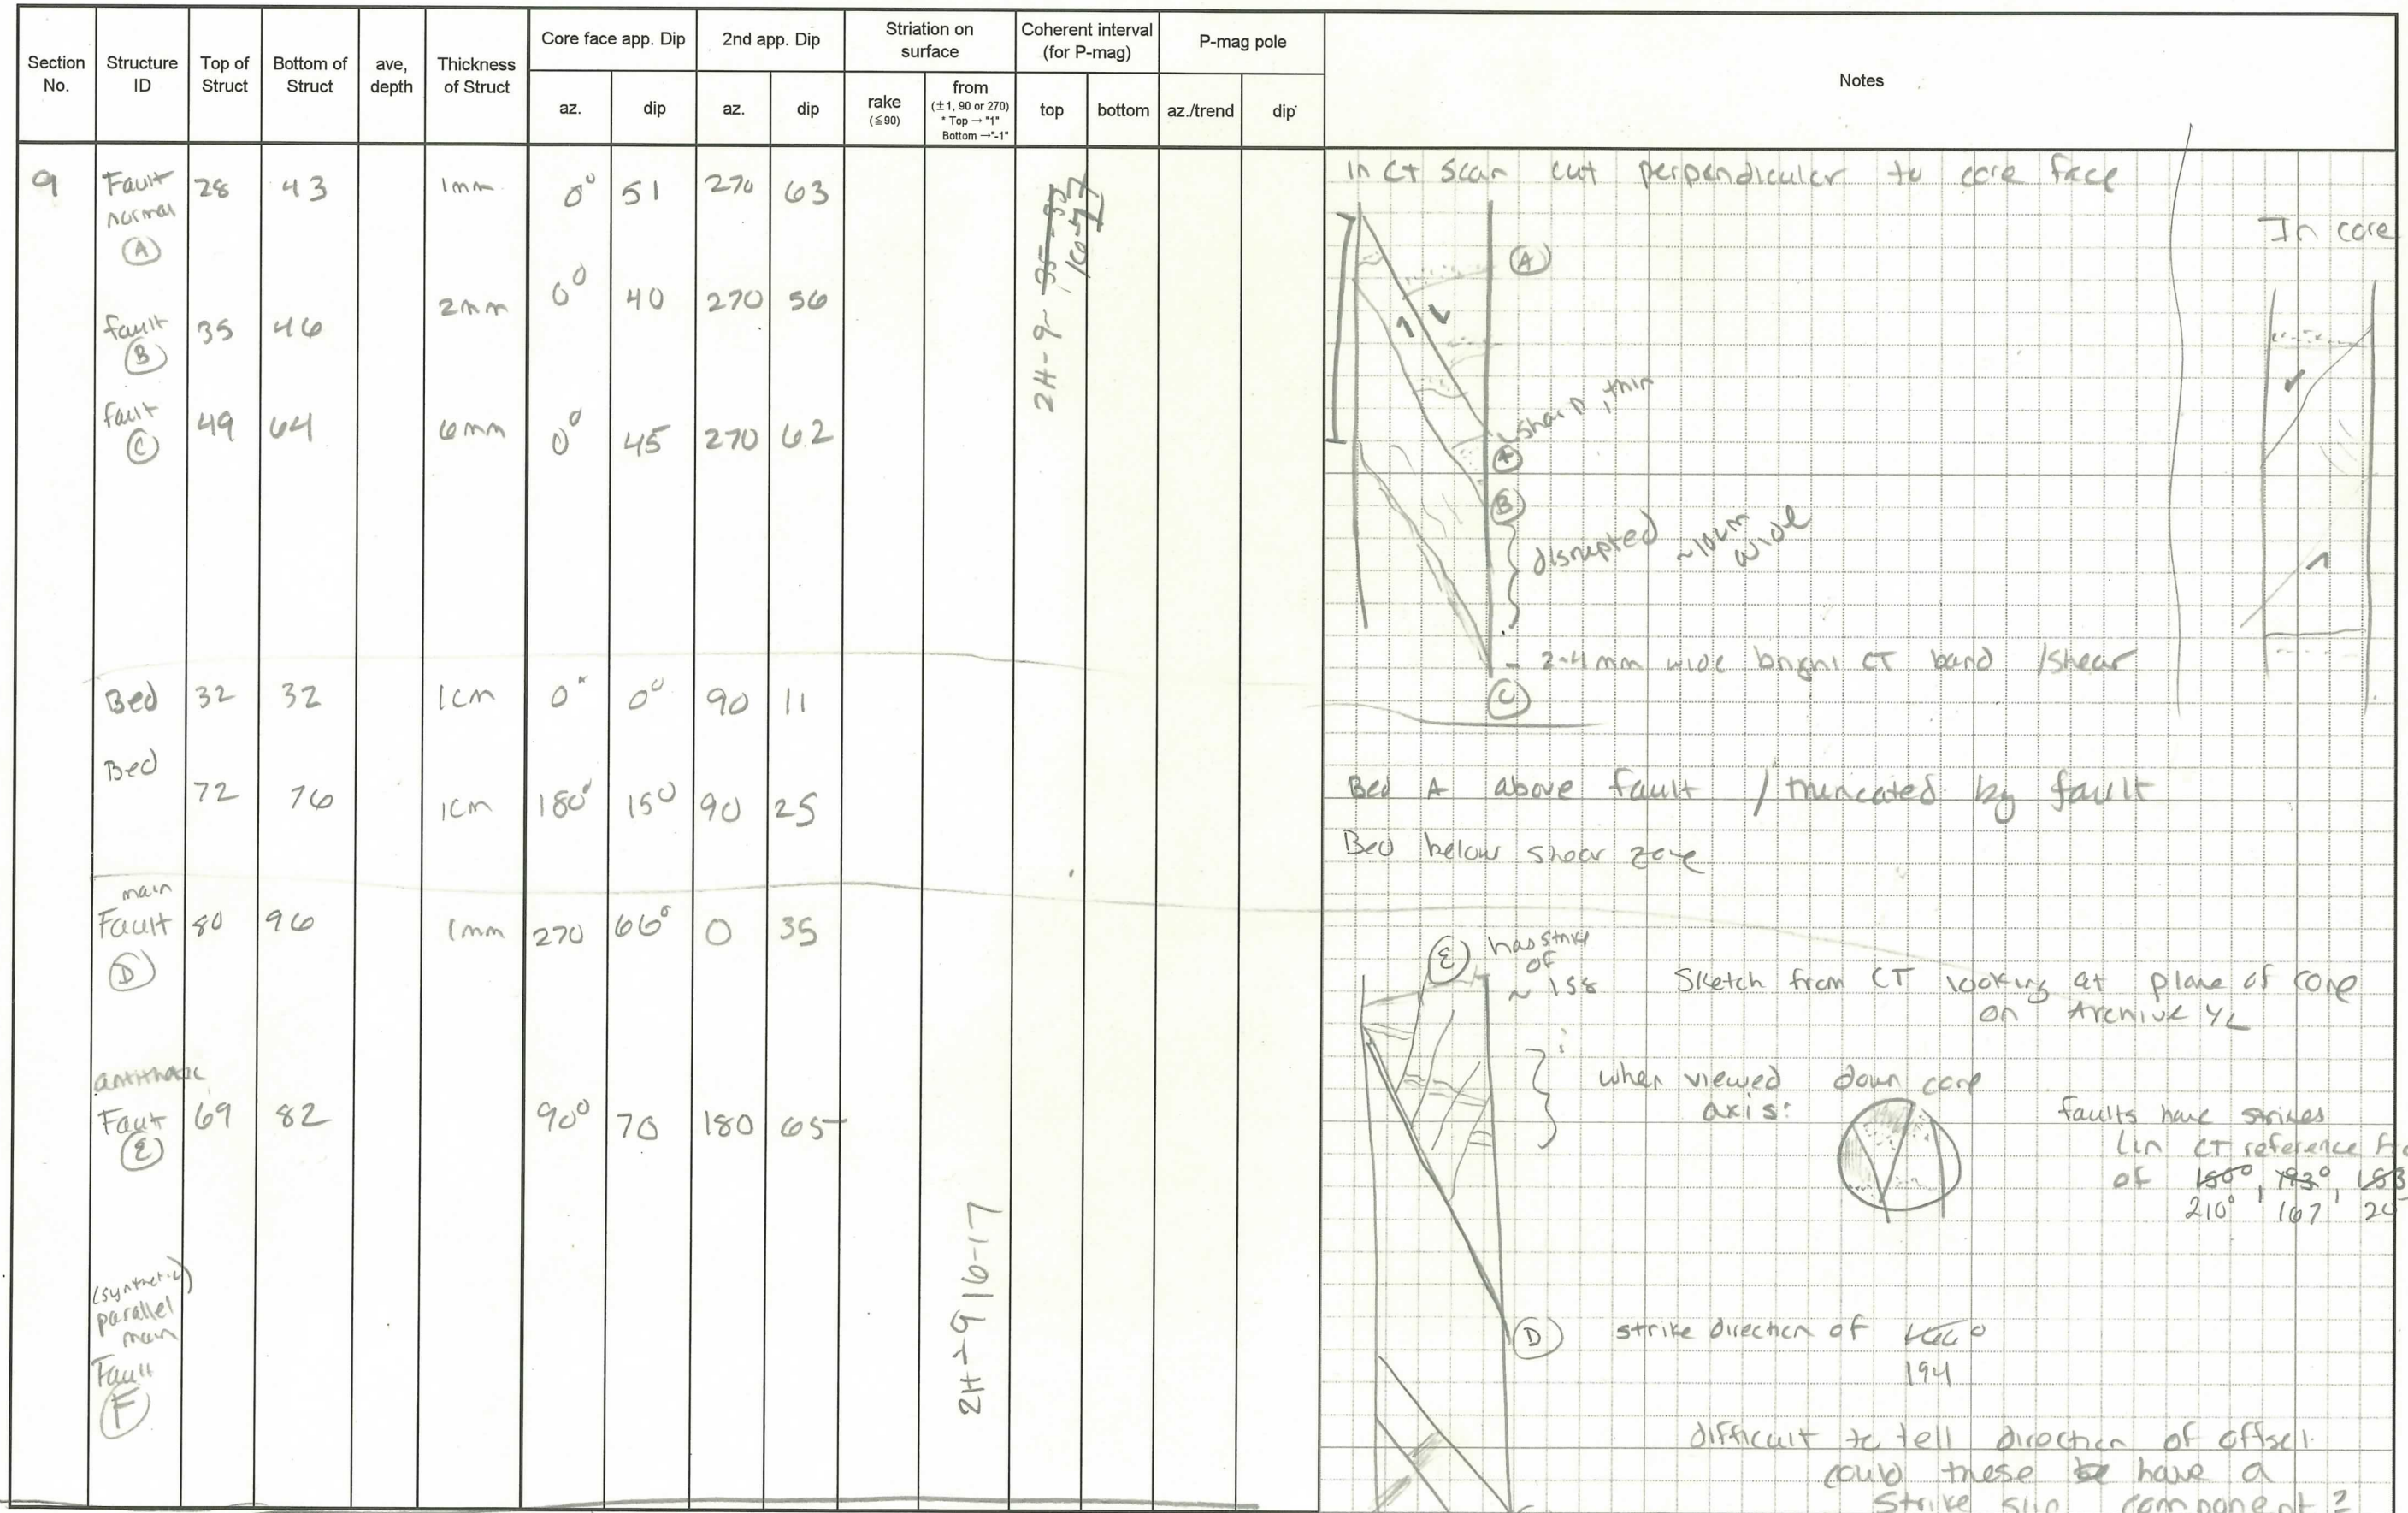 Section No.
Structure ID
Top of Struct
Bottom of Struct
ave, depth
Thickness of Struct
Core face app. Dip
az.
dip
2nd app. Dip
az.
dip
Striation on surface
rake (≦90)
from (±1, 90 or 270)
* Top → "1"
Bottom → "-1"
Coherent interval (for P-mag)
top
bottom
P-mag pole
az./trend
dip
Notes
9 Fault 28 43 1mm 0° 51 270 63
normal
A
fault 35 46 2mm 0° 40 270 56
B
fault 49 64 6mm 0° 45 270 62
C
2H-9-
Bed 32 32 1cm 0° 0° 90 11
Bed
72 76 1cm 180° 15° 90 25
main
Fault 80 96 1mm 270 66° 0 35
D
antithetic
Fault 69 82 90° 70 180 65
E
2H-9 16-17
(synthetic)
parallel
main
Fault
F
In CT scan cut perpendicular to core face
In core
A
sharp, thin
A
B
disrupted ~10cm
wide
- 2-4mm wide bright CT band /shear
C
Bed A above fault / truncated by fault
Bed below shear zone
E has strike
of
~ 158
Sketch from CT looking at plane of core
on Archive 1/2
when viewed down core
axis:
faults have strikes
in CT reference
of 180°, 193°,
210° 167
D strike direction of
194
difficult to tell direction of offset.
could these have a
strike slip component?